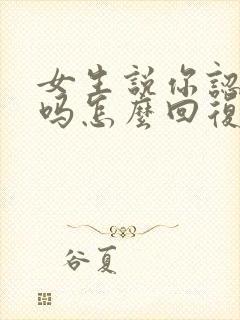 女生説你認
嗎怎麼回復
谷夏